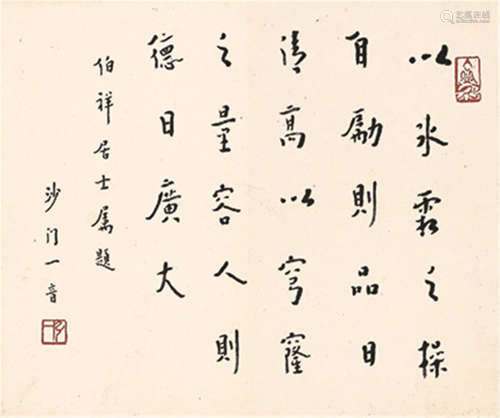 以冰霜之操
自勵則品日
清高以穹窿
之量容人則
德日廣大
伯祥居士屬題
沙门一音